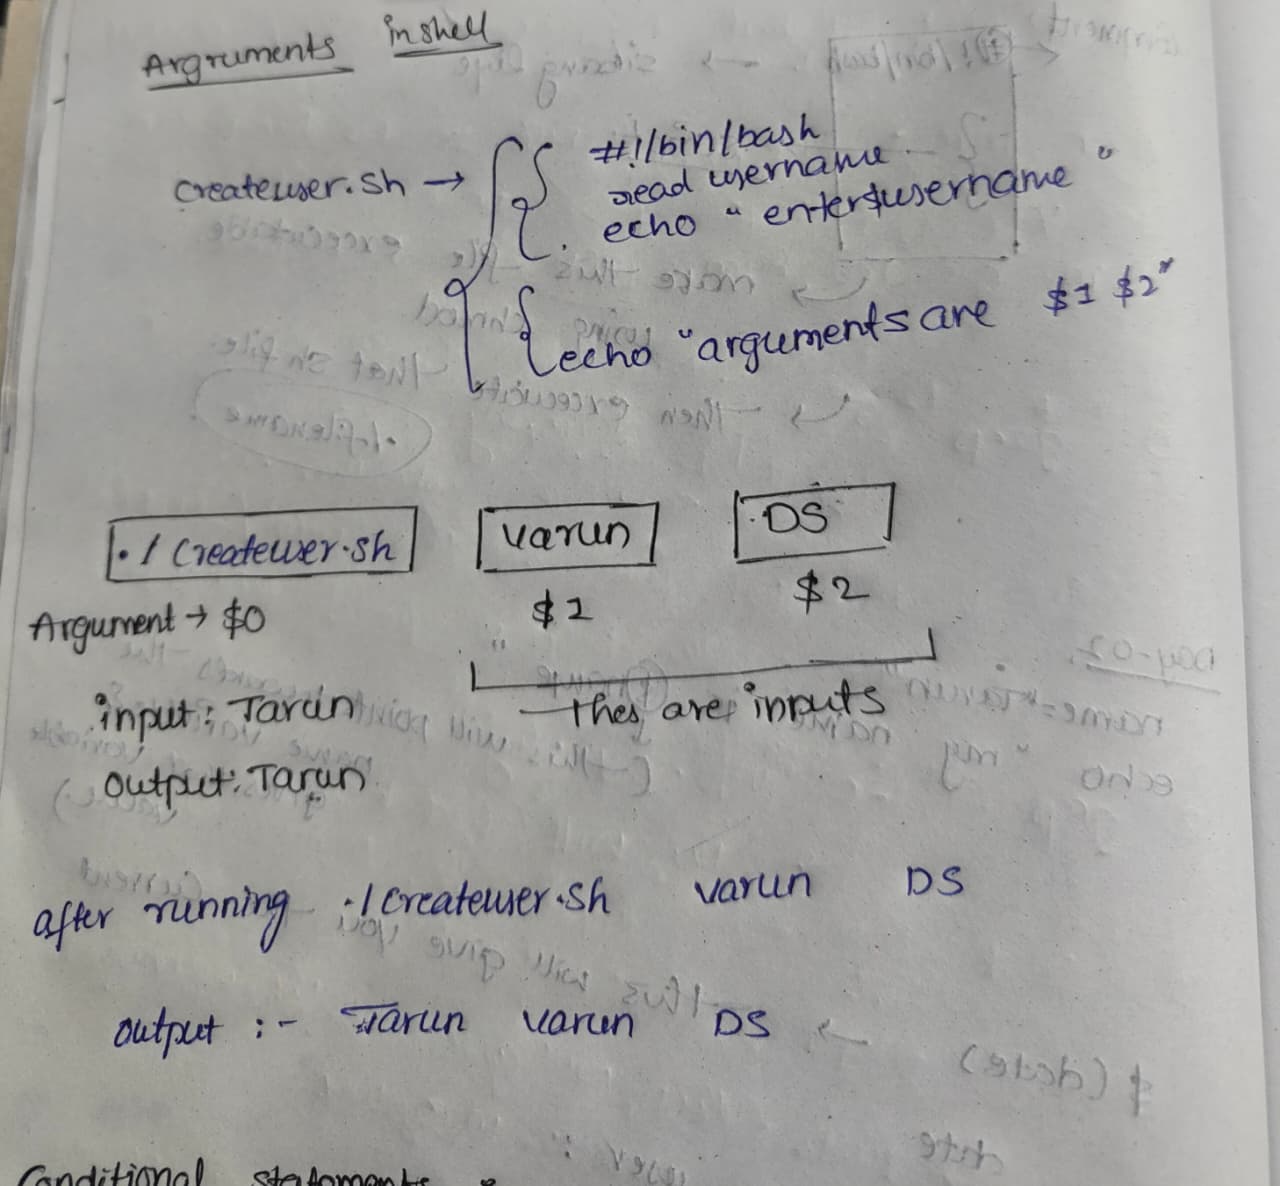 Argruments in shell
createuser.sh → #!/bin/bash
read username
echo " enter$username "
echo "arguments are $1 $2"
./createuser.sh varun DS
Argument → $0 $1 $2
input: Tarun thes are inputs
output: Tarun
after running ./createuser.sh varun DS
output :- Tarun varun DS
Conditional statements :